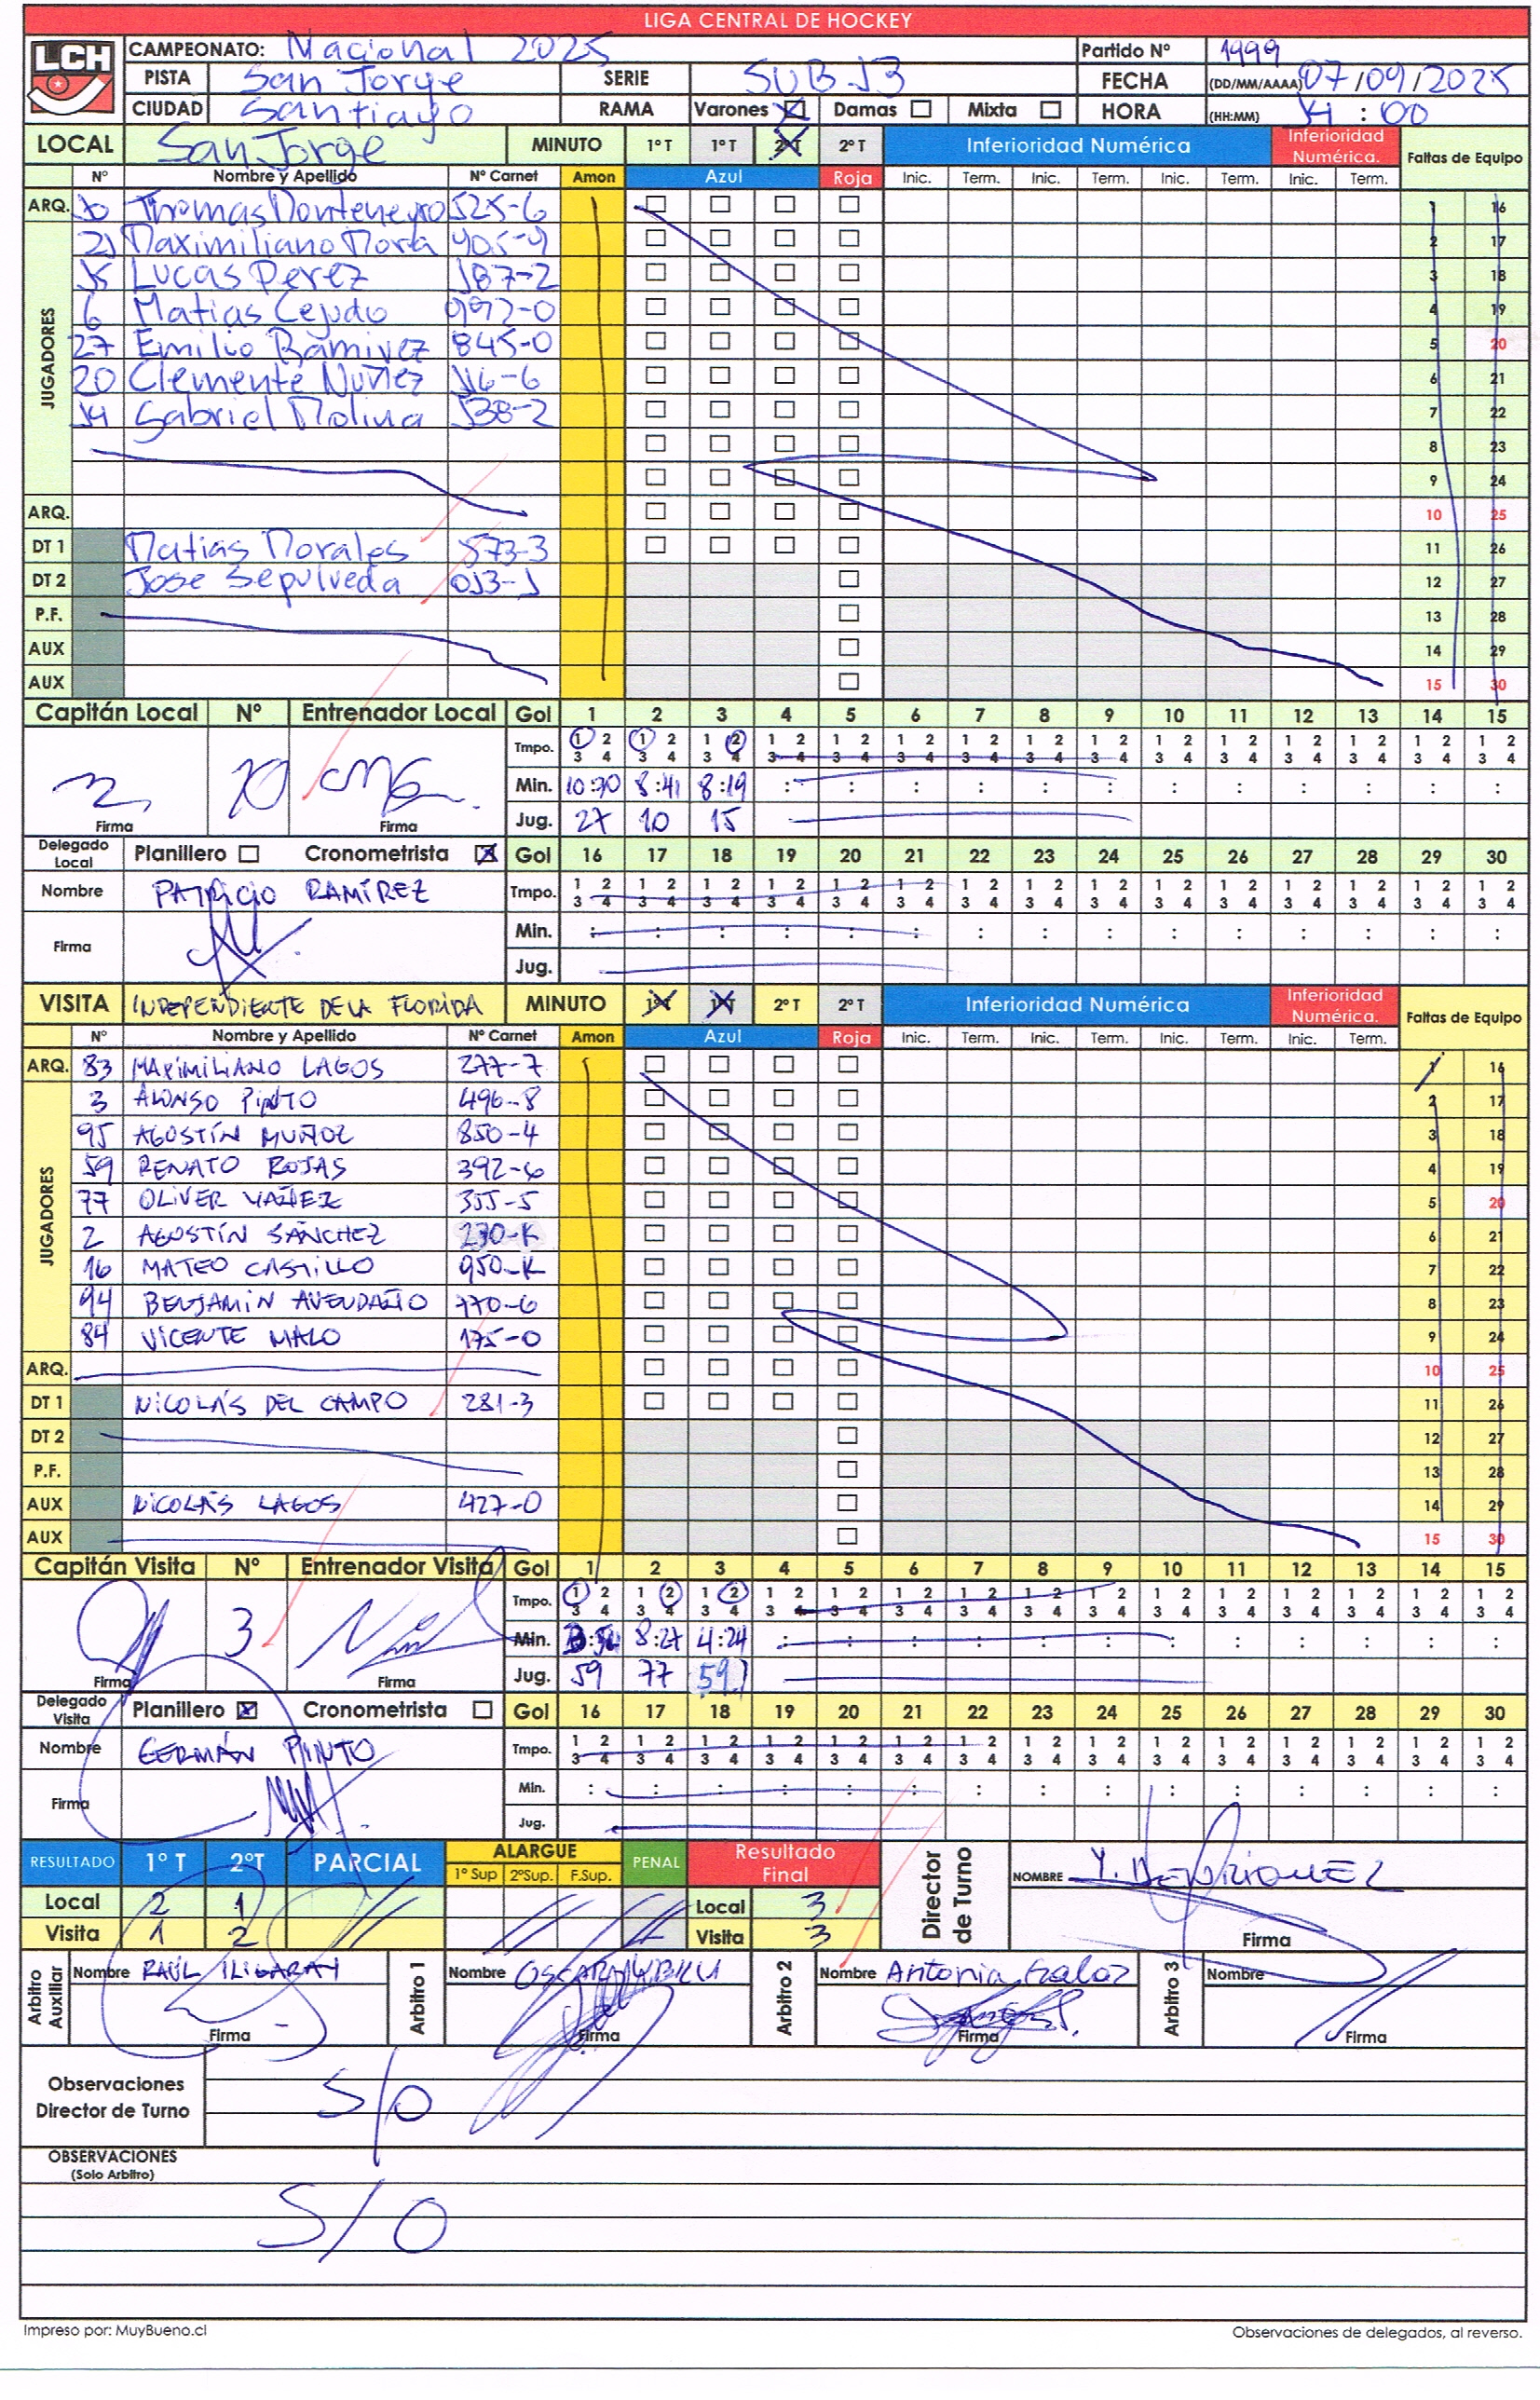 LIGA CENTRAL DE HOCKEY
LCH
CAMPEONATO: Nacional 2025 Partido Nº 1999
PISTA San Jorge SERIE SUB 13 FECHA (DD/MM/AAAA) 07/09/2025
CIUDAD Santiago RAMA Varones Damas Mixta HORA (HH:MM) :00
LOCAL San Jorge MINUTO 1º T 1º T 2º T 2º T Inferioridad Numérica Inferioridad Numérica. Faltas de Equipo
Nº Nombre y Apellido Nº Carnet Amon Azul Roja Inic. Term. Inic. Term. Inic. Term. Inic. Term.
ARQ. 10 Thomas Montenegro 525-6 1 16
JUGADORES
21 Maximiliano Mora 405-4 2 17
15 Lucas Perez 187-2 3 18
6 Matias Cejudo 992-0 4 19
27 Emilio Ramirez 845-0 5 20
20 Clemente Nuñez 116-6 6 21
14 Gabriel Molina 138-2 7 22
8 23
9 24
ARQ. 10 25
DT 1 Matias Morales 573-3 11 26
DT 2 Jose Sepulveda 013-1 12 27
P.F. 13 28
AUX 14 29
AUX 15 30
Capitán Local Nº Entrenador Local Gol 1 2 3 4 5 6 7 8 9 10 11 12 13 14 15
Tmpo. 1 2 1 2 1 2 1 2 1 2 1 2 1 2 1 2 1 2 1 2 1 2 1 2 1 2 1 2 1 2
3 4 3 4 3 4 3 4 3 4 3 4 3 4 3 4 3 4 3 4 3 4 3 4 3 4 3 4 3 4
10 Min. 10:30 8:41 8:19 : : : : : : : : : : : :
Firma Firma Jug. 27 10 15
Delegado Local Planillero Cronometrista Gol 16 17 18 19 20 21 22 23 24 25 26 27 28 29 30
Nombre PATRICIO RAMÍREZ Tmpo. 1 2 1 2 1 2 1 2 1 2 1 2 1 2 1 2 1 2 1 2 1 2 1 2 1 2 1 2 1 2
3 4 3 4 3 4 3 4 3 4 3 4 3 4 3 4 3 4 3 4 3 4 3 4 3 4 3 4 3 4
Firma Min. : : : : : : : : : : : : : : :
Jug.
VISITA INDEPENDIENTE DE LA FLORIDA MINUTO 1º T 1º T 2º T 2º T Inferioridad Numérica Inferioridad Numérica. Faltas de Equipo
Nº Nombre y Apellido Nº Carnet Amon Azul Roja Inic. Term. Inic. Term. Inic. Term. Inic. Term.
ARQ. 83 MAXIMILIANO LAGOS 277-7 1 16
JUGADORES
3 ALONSO PINTO 496-8 2 17
95 AGOSTÍN MUÑOZ 850-4 3 18
59 RENATO ROJAS 392-6 4 19
77 OLIVER YAÑEZ 355-5 5 20
2 AGOSTÍN SÁNCHEZ 230-K 6 21
16 MATEO CASTILLO 950-K 7 22
94 BENJAMÍN AVENDAÑO 770-6 8 23
84 VICENTE MALO 175-0 9 24
ARQ. 10 25
DT 1 NICOLÁS DEL CAMPO 281-3 11 26
DT 2 12 27
P.F. 13 28
AUX NICOLÁS LAGOS 427-0 14 29
AUX 15 30
Capitán Visita Nº Entrenador Visita Gol 1 2 3 4 5 6 7 8 9 10 11 12 13 14 15
Tmpo. 1 2 1 2 1 2 1 2 1 2 1 2 1 2 1 2 1 2 1 2 1 2 1 2 1 2 1 2 1 2
3 4 3 4 3 4 3 4 3 4 3 4 3 4 3 4 3 4 3 4 3 4 3 4 3 4 3 4 3 4
3 Min. 8:27 4:24 : : : : : : : : : : : :
Firma Firma Jug. 59 77 59
Delegado Visita Planillero Cronometrista Gol 16 17 18 19 20 21 22 23 24 25 26 27 28 29 30
Nombre GERMÁN PINTO Tmpo. 1 2 1 2 1 2 1 2 1 2 1 2 1 2 1 2 1 2 1 2 1 2 1 2 1 2 1 2 1 2
3 4 3 4 3 4 3 4 3 4 3 4 3 4 3 4 3 4 3 4 3 4 3 4 3 4 3 4 3 4
Firma Min. : : : : : : : : : : : : : : :
Jug.
RESULTADO 1º T 2ºT PARCIAL ALARGUE 1º Sup 2ºSup. F.Sup. PENAL Resultado Final Director de Turno NOMBRE Y. HENRIQUEZ
Local 2 1 Local 3
Visita 1 2 Visita 3 Firma
Arbitro Auxiliar Nombre RAÚL Arbitro 1 Nombre OSCAR Arbitro 2 Nombre Antonia Arbitro 3 Nombre
Firma Firma Firma Firma
Observaciones Director de Turno S/O
OBSERVACIONES
(Solo Arbitro)
S/O
Impreso por: MuyBueno.cl Observaciones de delegados, al reverso.